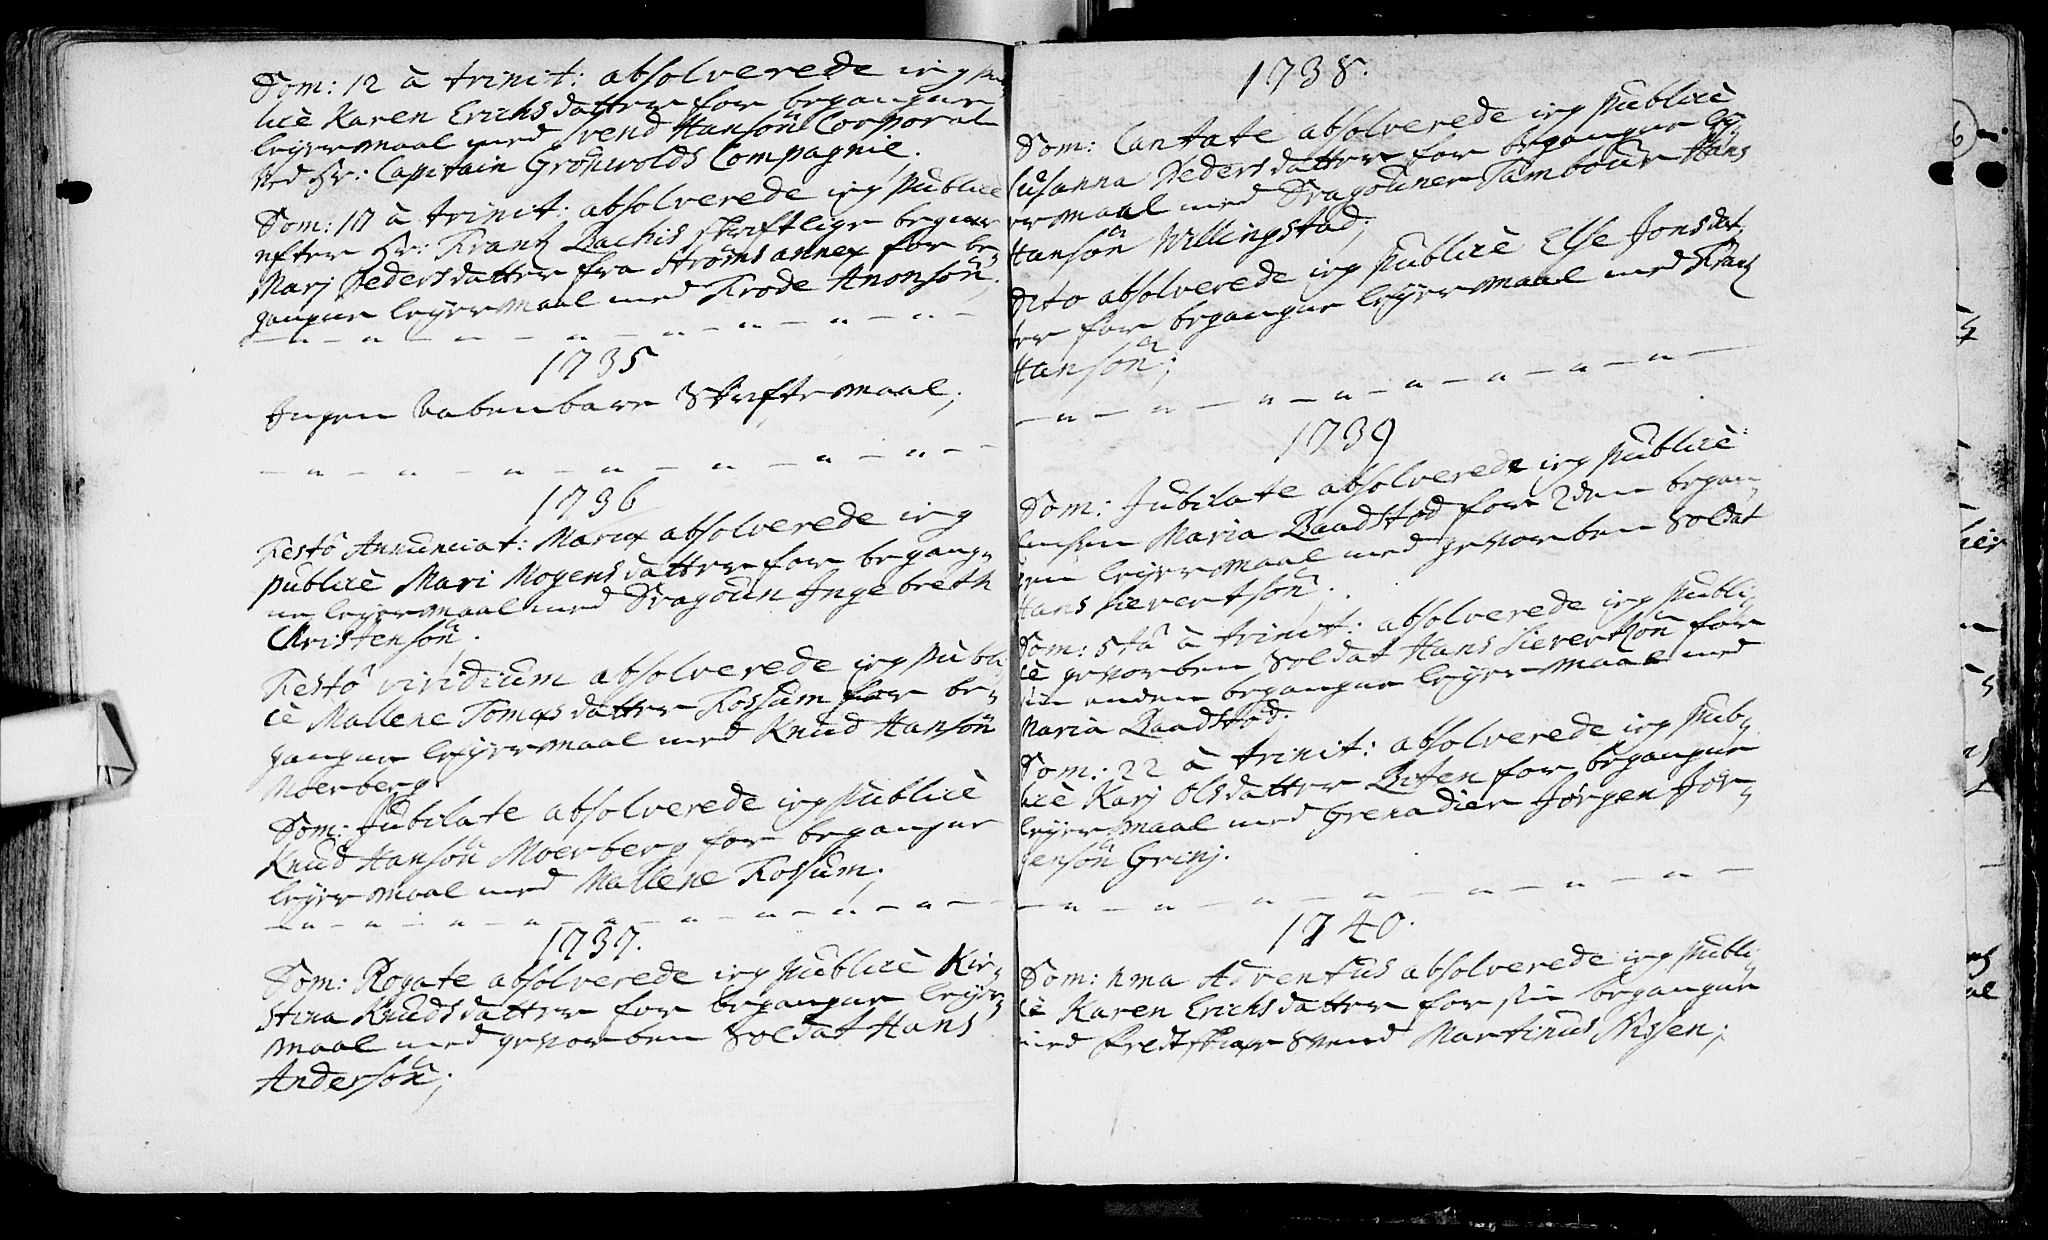 Dom: 12 à trinit: absolverede ieg pub-
licè Karen Erichsdatter for begangne
leyermaal med Svend Hansøn Corporal
Ved Hr: Capitain Grönwolds Compagnie.
Dom: 17 à trinit: absolverede ieg publice
efter Hr: Frantz Bachis skriftlige begier
Marj Pedersdatter fra Strøms annex for be-
gangne leyermaal med Frode Anonsøn.
1735
Ingen Aabenbare Skriftemaal;
1736
Festô Annunciat: Mariæ absolverede ieg
publicè Mari Mogensdatter for begang-
ne leyermaal med Dragoun Ingebreth
Christensøn.
Festô viridium absolverede ieg publi-
cè Mallene Tomasdatter Fossum for be-
gangne leyermaal med Knud Hansøn
Moerberg.
Dom: Jubilate absolverede ieg publicè
Knud Hansøn Moerberg for begangne
leyermaal med Mallene Fossum;
1737.
Dom: Rogate absolverede ieg publicè Kir-
stina Knudsdatter for begangne leyer-
maal med gevorben Soldat Hans
Andersøn;
1738.
Dom: Cantate absolverede ieg publicè
Susanna Pedersdatter for begangne ley-
ermaal med Dragouner Tambour Hans
Hansøn Willingstad;
Dito absolverede ieg publicè Else Jonsdat-
ter for begangne leyermaal med Frantz
Hansøn;
1739
Dom: Jubilate absolverede ieg publicè
Maria Baadstød for 2den began-
gen leyermaal med gevorben Soldat
Hans Sievertsøn.
Dom: 5tâ à trinit: absolverede ieg publi-
cè gevorben Soldat Hans Sievertsøn for
sin anden begangne leyermaal med
Maria Baadstød.
Dom: 22 à trinit: absolverede ieg pub-
licè Karj Olsdatter Biten for begangne
leyermaal med Grenadier Jørgen Jør-
gensøn Grinj.
1740.
Dom: 1ma Adventus absolverede ieg publi-
cè Karen Erichsdatter for sin begangne
med Svend Martinus Nissen;
6